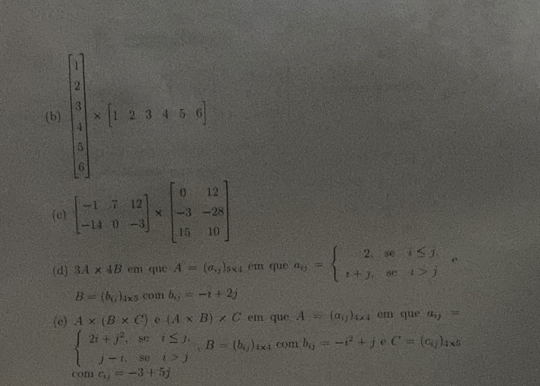 (b) [1 2 3 4 5 6] × [1 2 3 4 5 6]
(c) [-1 7 12
-14 0 -3] × [0 12
-3 -28
15 10]
(d) 3A × 4B em que A = (aij)3×4 em que aij = { 2, se i ≤ j,
i + j, se i > j e
B = (bij)4×5 com bij = -i + 2j
(e) A × (B × C) e (A × B) × C em que A = (aij)4×4 em que aij =
{ 2i + j², se i ≤ j,
j - i, se i > j , B = (bij)4×4 com bij = -i² + j e C = (cij)4×5
com cij = -3 + 5j